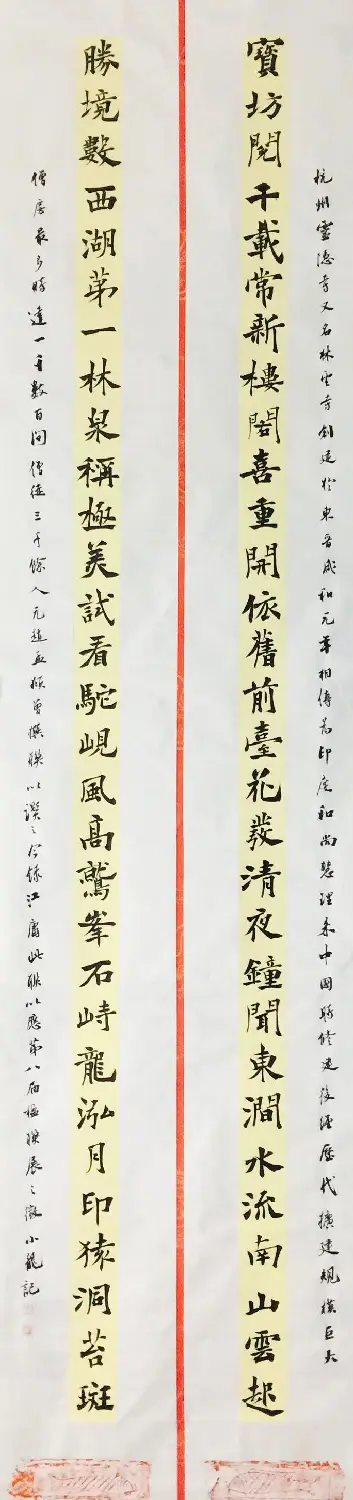 杭州靈隱寺又名林雲寺創建於東晉咸和元年相傳爲印度和尚慧理來中國時修建後經歷代擴建規模巨大
寶坊閱千載常新樓閣喜重開依舊前臺花發清夜鐘聞東澗水流南山雲起
勝境數西湖第一林泉稱極美試看駝峴風高鷲峯石峙龍泓月印猿洞苔斑
僧房最多時達一千數百間僧徒三千餘人元趙孟頫曾撰聯以讚之今錄江庸此聯以應第八屆楹聯展之徵小龍記